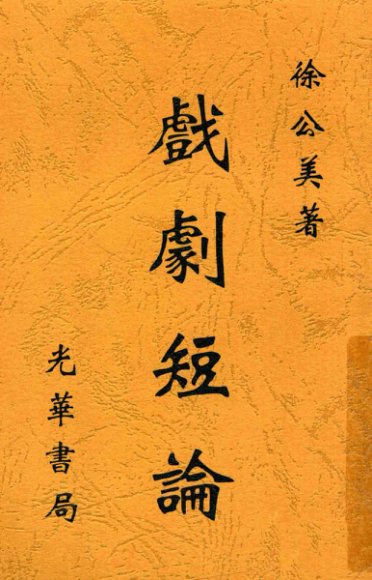 徐公美著
戲劇短論
光華書局